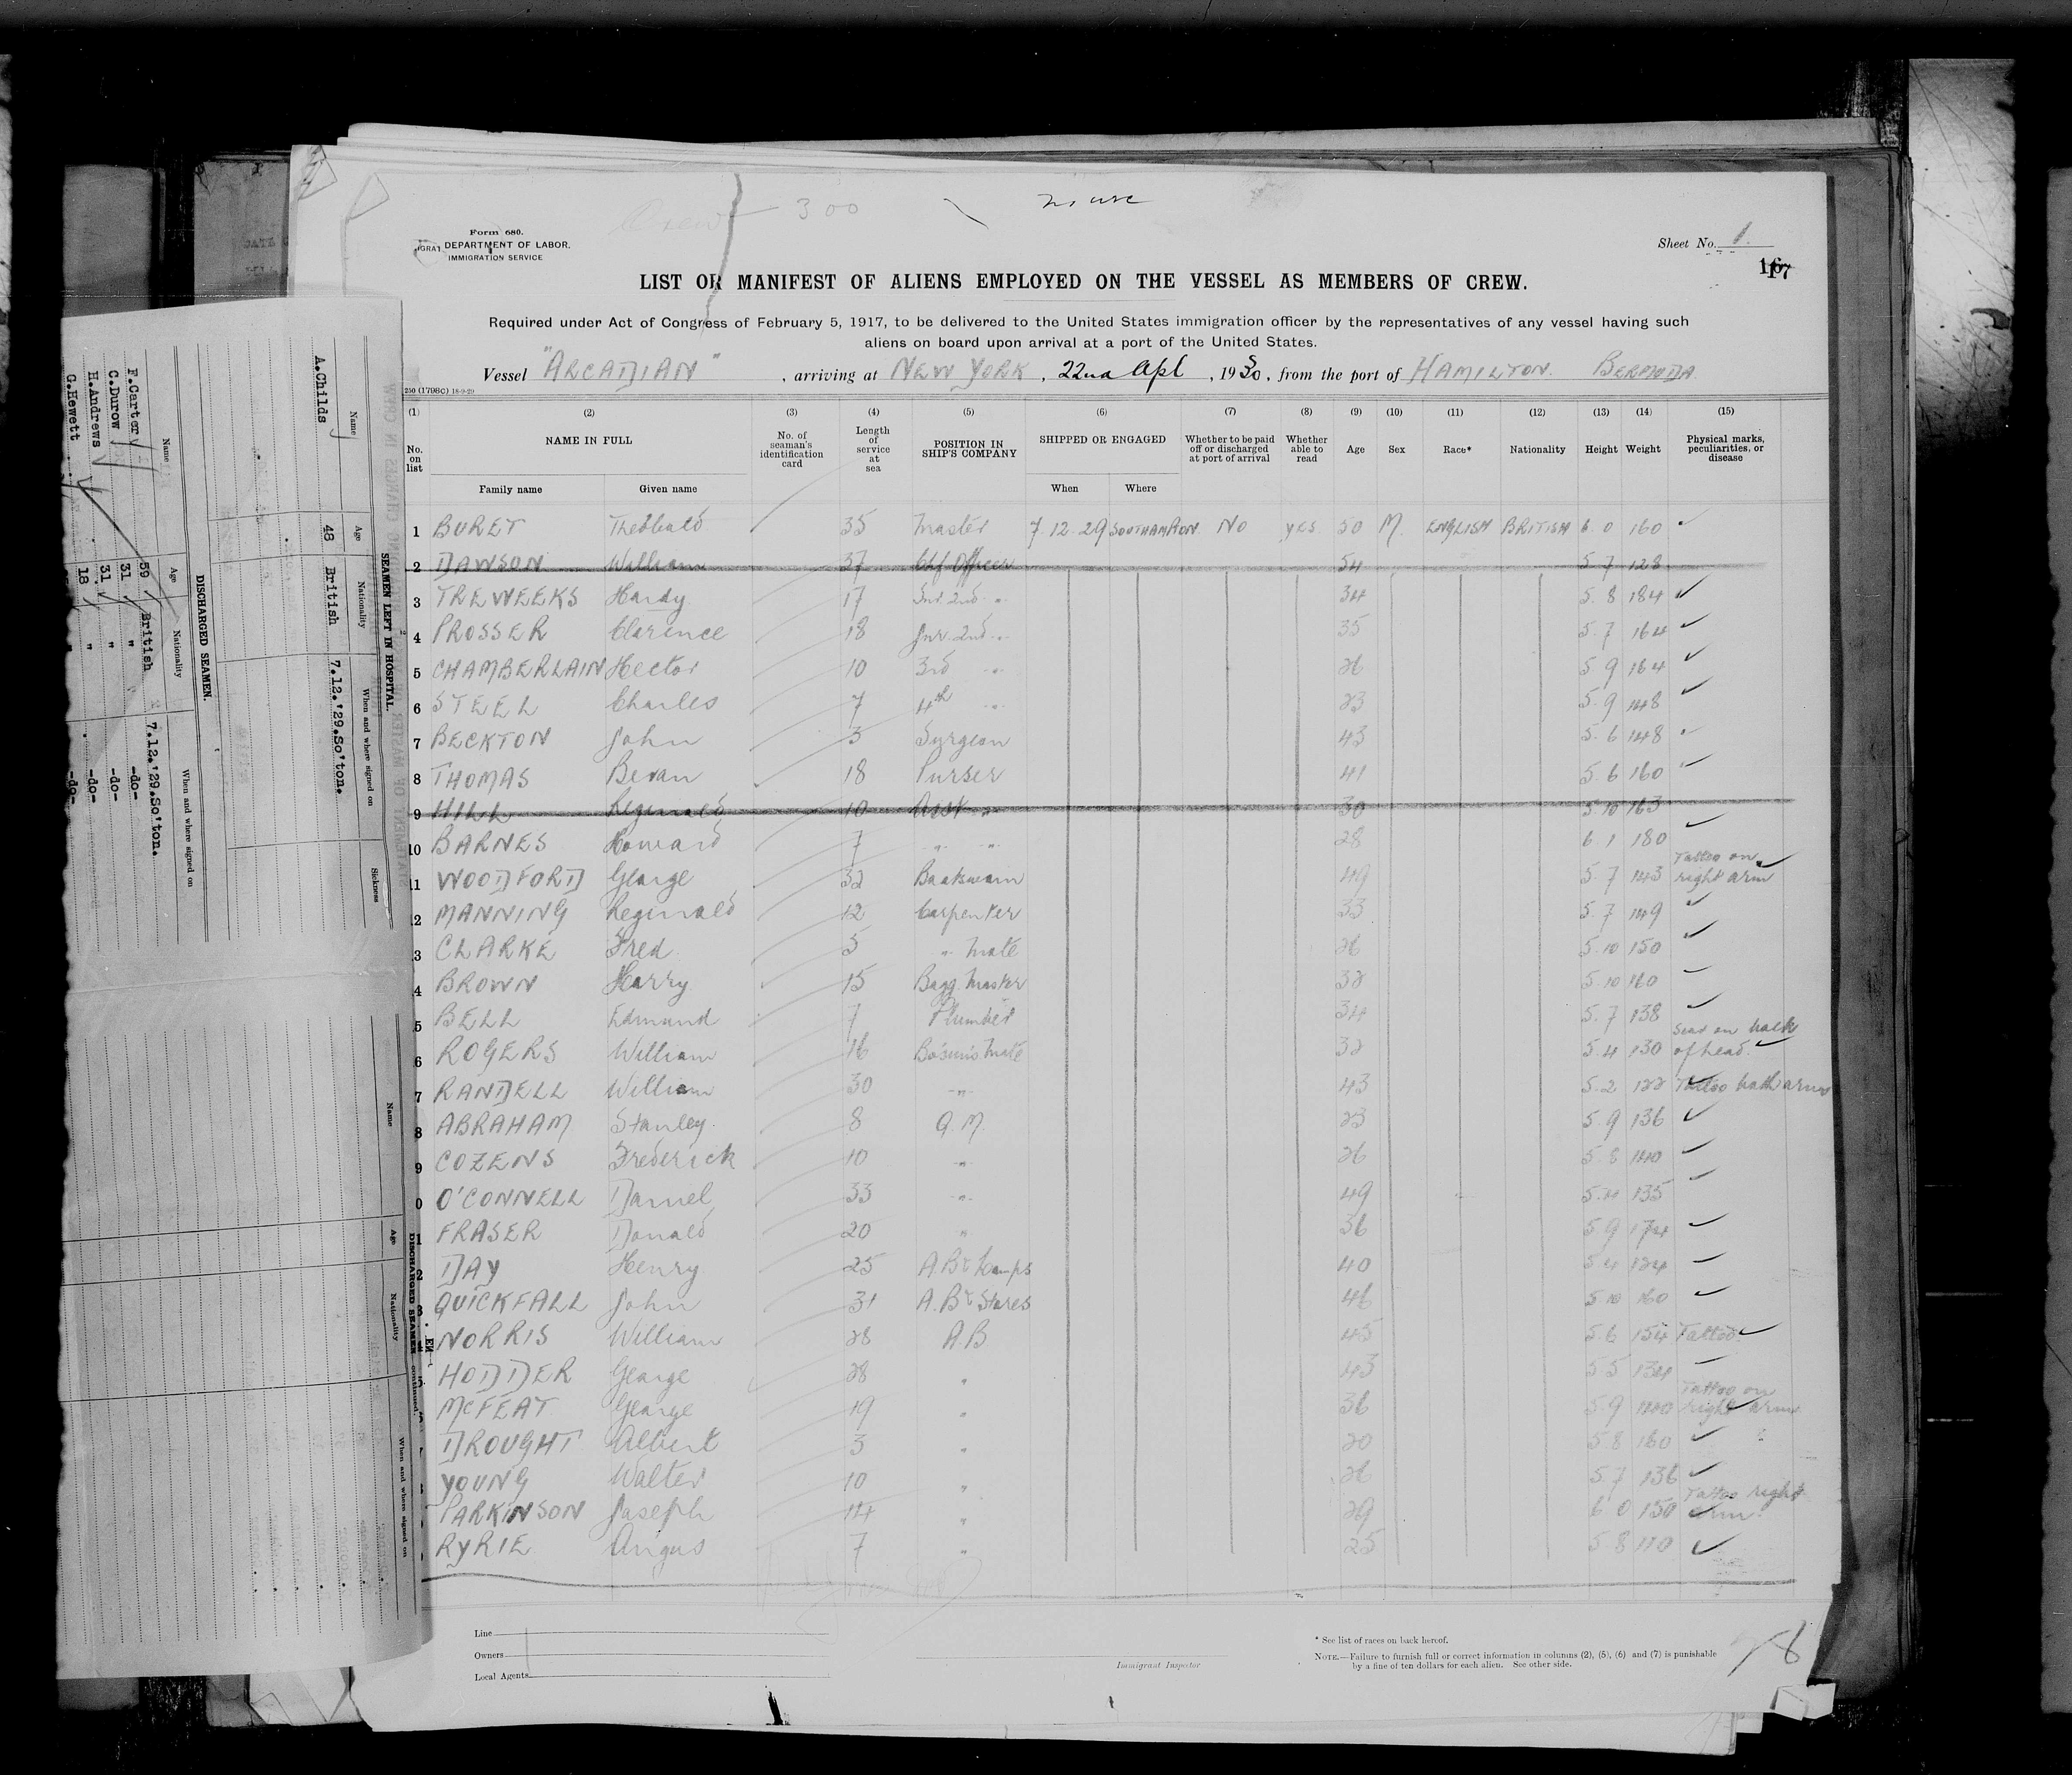 Crew 300
Form 680.
DEPARTMENT OF LABOR.
IMMIGRATION SERVICE
Sheet No. 1.
16 17
LIST OR MANIFEST OF ALIENS EMPLOYED ON THE VESSEL AS MEMBERS OF CREW.
Required under Act of Congress of February 5, 1917, to be delivered to the United States immigration officer by the representatives of any vessel having such
aliens on board upon arrival at a port of the United States.
Vessel "ARCADIAN", arriving at NEW YORK, 22nd Apl, 1930, from the port of HAMILTON. BERMUDA
250 (1798c) 18-9-29
(1) (2) (3) (4) (5) (6) (7) (8) (9) (10) (11) (12) (13) (14) (15)
No. on list NAME IN FULL No. of seaman's identification card Length of service at sea POSITION IN SHIP'S COMPANY SHIPPED OR ENGAGED Whether to be paid off or discharged at port of arrival Whether able to read Age Sex Race* Nationality Height Weight Physical marks, peculiarities, or disease
Family name Given name When Where
1 BURET Theobald 35 Master 7.12.29 SOUTHAMPTON NO yes 50 M. ENGLISH BRITISH 6.0 160
2 DAWSON William 37 Chf Officer 54 5.7 128
3 TREWEEKS Hardy 17 Snr. 2nd " 34 5.8 184
4 PROSSER Clarence 18 Jnr. 2nd " 35 5.7 164
5 CHAMBERLAIN Hector 10 3rd " 26 5.9 164
6 STEEL Charles 7 4th " 23 5.9 148
7 BECKTON John 3 Surgeon 43 5.6 148
8 THOMAS Bevan 18 Purser 41 5.6 160
9 HILL Reginald 10 Asst " 30 5.10 163
10 BARNES Howard 7 " " 28 6.1 180
11 WOODFORD George 32 Boatswain 49 5.7 143 Tattoo on right arm
2 MANNING Reginald 12 Carpenter 33 5.7 149
3 CLARKE Fred 5 " Mate 26 5.10 150
4 BROWN Harry 15 Bagg. Master 32 5.10 160
5 BELL Edmund 7 Plumber 34 5.7 138
6 ROGERS William 16 Bosun's Mate 32 5.4 130 Scar on back of head.
7 RANDELL William 30 " 43 5.2 122 Tattoo both arms
8 ABRAHAM Stanley 8 Q.M. 23 5.9 136
9 COZENS Frederick 10 " 26 5.8 140
0 O'CONNELL Daniel 33 " 49 135
1 FRASER Donald 20 " 36 5.9 174
2 DAY Henry 25 A.B & Lamps 40 5.4 124
3 QUICKFALL John 31 A.B & Stores 46 5.10 160
NORRIS William 28 A.B 45 5.6 154 Tattoo
5 HODDER George 28 " 43 5.5 134
McFEAT George 19 " 36 5.9 140 Tattoo on right arm
DROUGHT Albert 3 " 20 5.8 160
YOUNG Walter 10 " 26 5.7 136
PARKINSON Joseph 14 " 29 6 0 150 Tattoo right arm
RYRIE Angus 7 " 25 5 8 110
Line
Owners
Local Agents
Immigrant Inspector
* See list of races on back hereof.
NOTE.—Failure to furnish full or correct information in columns (2), (5), (6) and (7) is punishable
by a fine of ten dollars for each alien. See other side.
SEAMEN LEFT IN HOSPITAL.
Name Age Nationality When and where signed on Sickness
A.Childs 48 British 7.12.'29.So'ton.
DISCHARGED SEAMEN.
Name Age Nationality When and where signed on
F.Carter 59 British 7.12.'29.So'ton.
C.Durow 31 " -do-
H.Andrews 31 " -do-
G.Hewett 18 " -do-
DISCHARGED SEAMEN continued.
Name Age Nationality When and where signed on